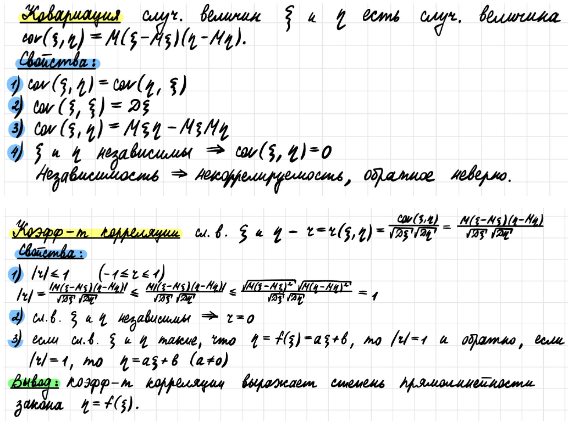 Ковариация случ. величин ξ и η есть случ. величина
cov(ξ,η) = M(ξ-Mξ)(η-Mη).
Свойства:
1) cov(ξ,η) = cov(η,ξ)
2) cov(ξ,ξ) = Dξ
3) cov(ξ,η) = Mξη - MξMη
4) ξ и η независимы ⇒ cov(ξ,η) = 0
Независимость ⇒ некоррелируемость, обратное неверно.
Коэфф-т корреляции сл. в. ξ и η - r = r(ξ,η) = cov(ξ,η)/(√Dξ √Dη) = M(ξ-Mξ)(η-Mη)/(√Dξ √Dη)
Свойства:
1) |r| ≤ 1 (-1 ≤ r ≤ 1)
|r| = |M(ξ-Mξ)(η-Mη)|/(√Dξ √Dη) ≤ M|(ξ-Mξ)(η-Mη)|/(√Dξ √Dη) ≤ √M(ξ-Mξ)² √M(η-Mη)²/(√Dξ √Dη) = 1
2) сл. в. ξ и η независимы ⇒ r = 0
3) если сл. в. ξ и η такие, что η = f(ξ) = aξ+b, то |r| = 1 и обратно, если
|r| = 1, то η = aξ+b (a≠0)
Вывод: коэфф-т корреляции выражает степень прямолинейности
закона η = f(ξ).